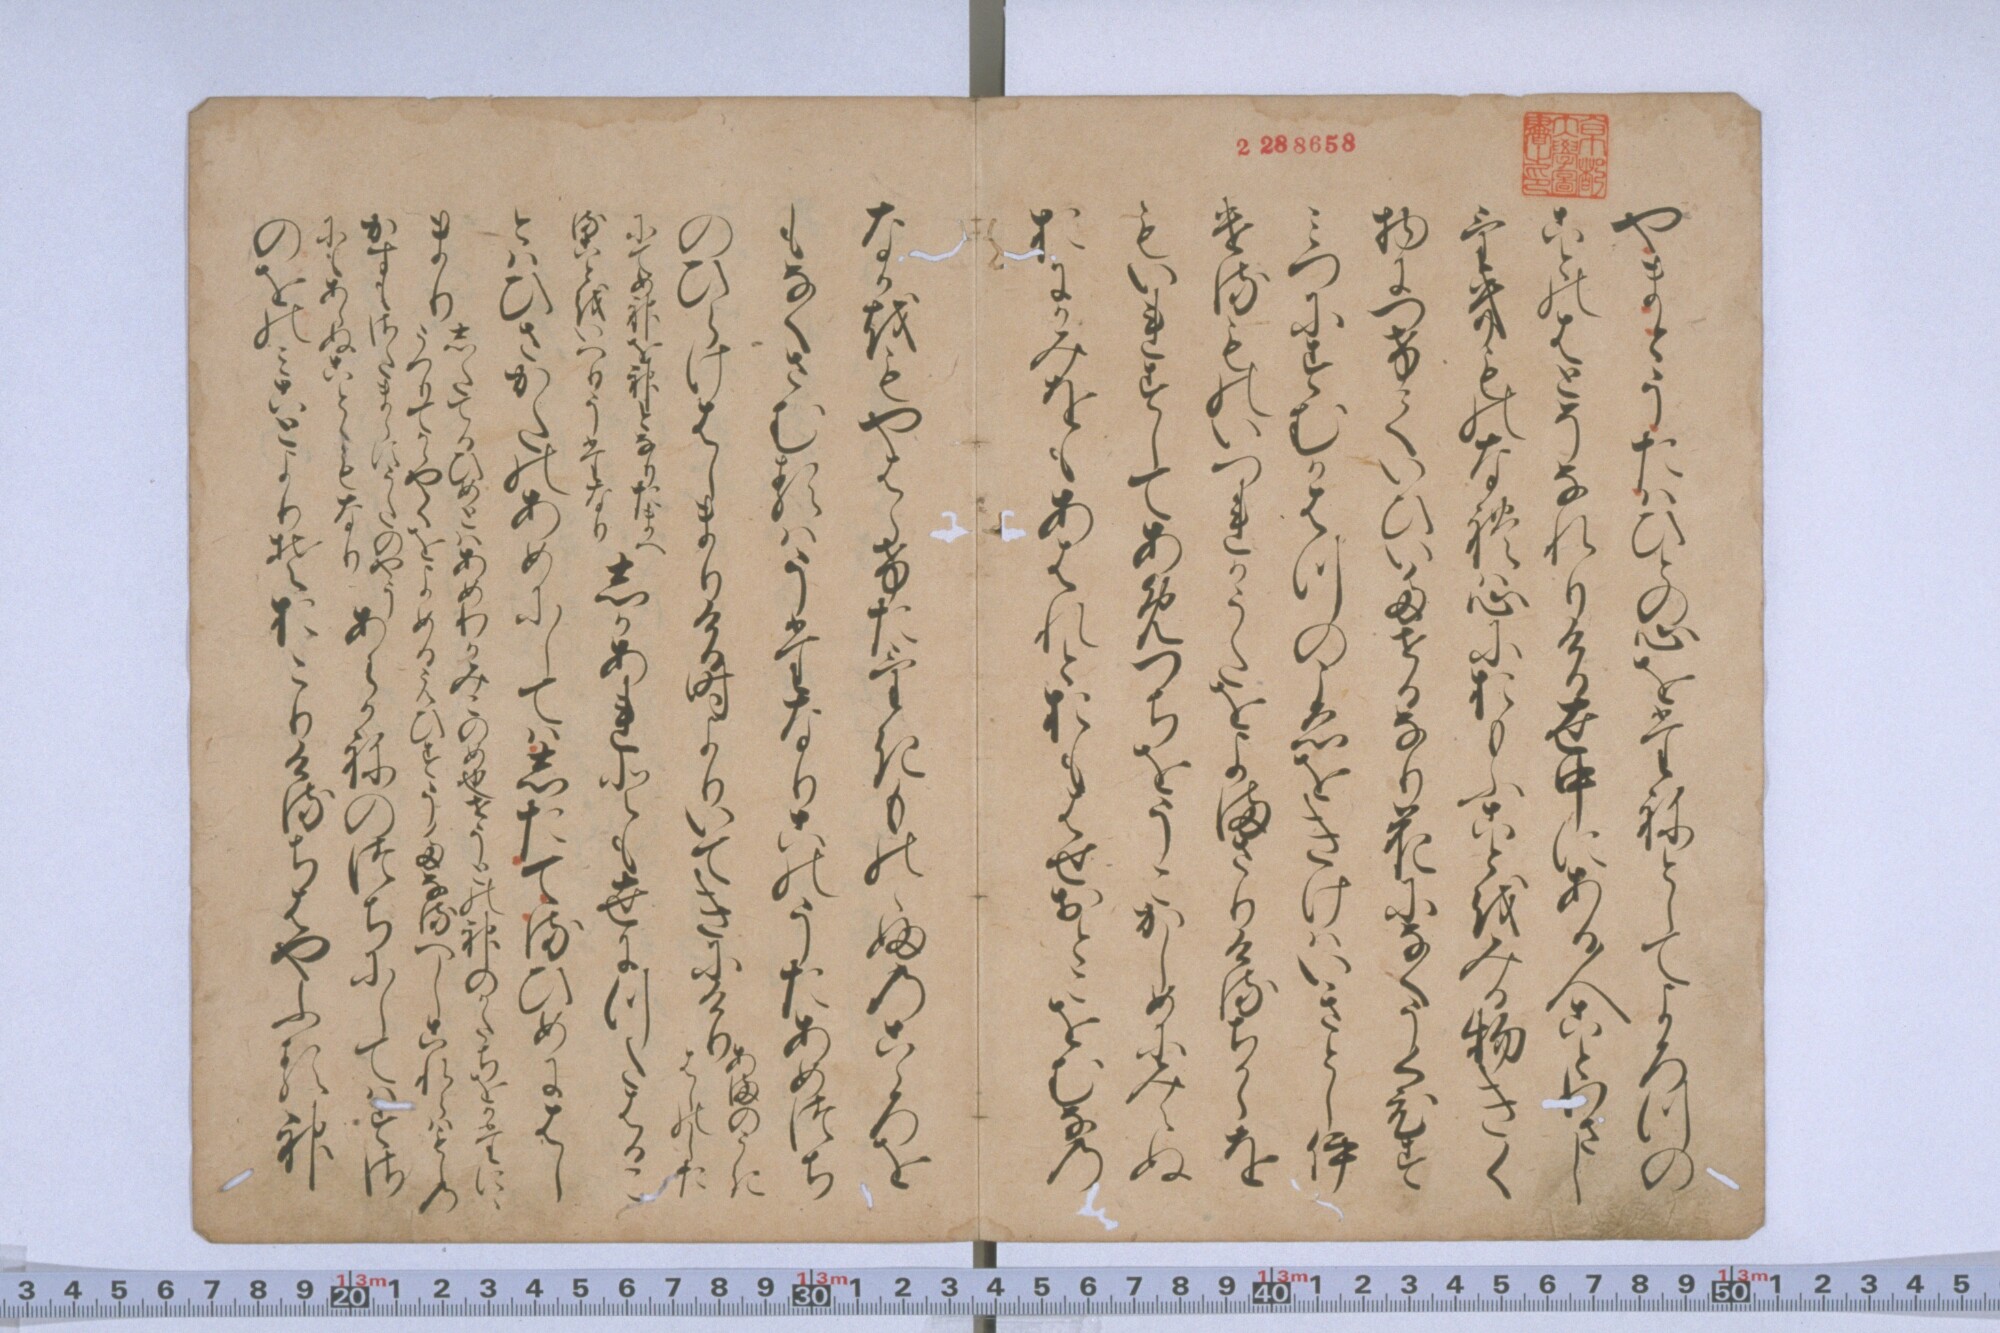 京都
大學圖
書之印
2288658
やまとうたはひとの心をたねとしてよろつの
ことのはとそなれりける世中にある人ことわさし
けきものなれは心におもふことをみる物きく
物につけていひいたせるなり花になくうくひす
みつにすむかはつのこゑをきけはいきとしいけ
るものいつれかうたをよまさりけるちからを
もいれすしてあめつちをうこかしめにみえぬ
おにかみをもあはれとおもはせおとこをむなの
なかをもやはらけたけきものゝふのこゝろを
もなくさむるはうたなりこのうたあめつち
のひらけはしまりける時よりいてきにけり
あまのうき
はしのした
にてめ神を神となりたまへ
ることをいへるうたなり
しかあれとも世につたはるこ
とはひさかたのあめにしてはしたてるひめにはし
まり
したてるひめとはあめわかみこのめ也せうとの神のかたちをかたに
うつりてかゝやくをよめるえひすうたなるへしこれらはもしの
かすもさたまらすうたのやう
にもあらぬことゝもなり
あらかねのつちにしてはすさ
のをのみことよりそおこりけるちはやふる神